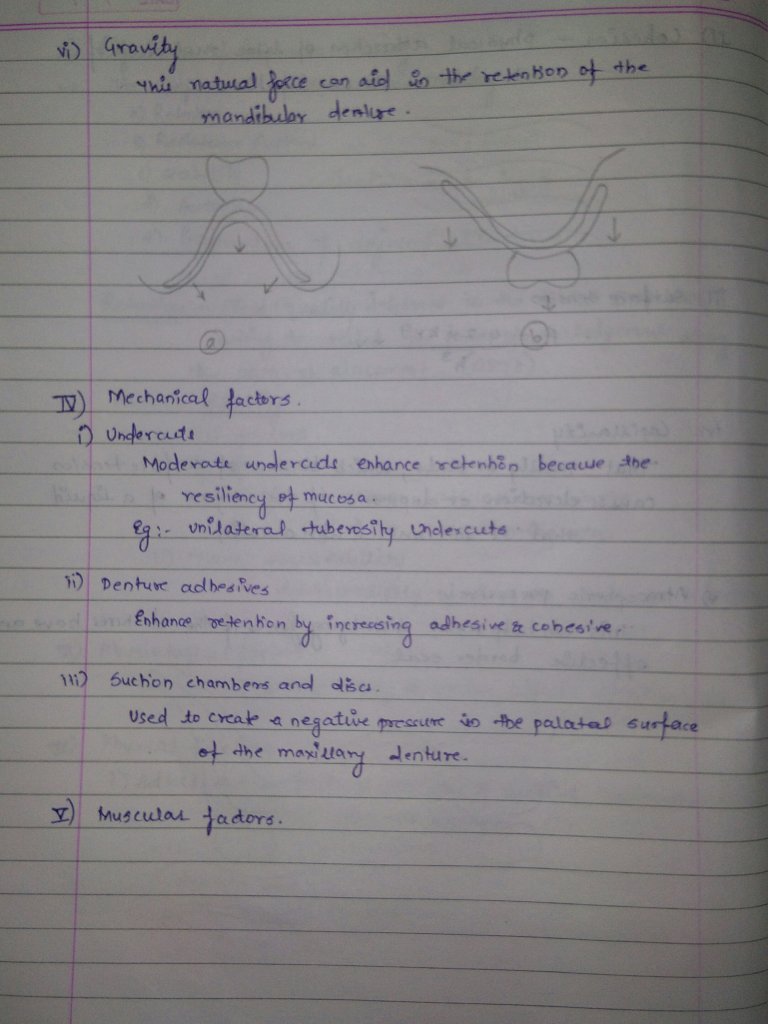 vi) Gravity
This natural force can aid in the retention of the
mandibular denture.
a
b
IV) Mechanical factors.
i) Undercuts
Moderate undercuts enhance retention because the
resiliency of mucosa.
Eg:- unilateral tuberosity undercuts
ii) Denture adhesives
Enhance retention by increasing adhesive & cohesive.
iii) Suction chambers and discs.
Used to create a negative pressure in the palatal surface
of the maxillary denture.
V) Muscular factors.